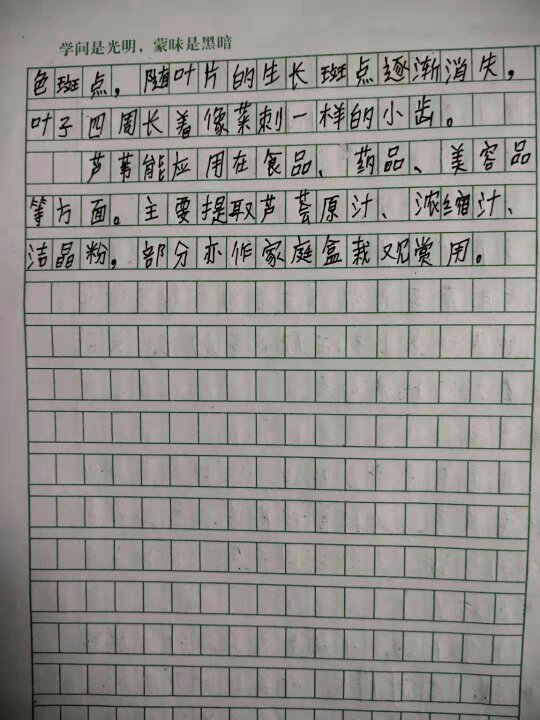 学问是光明，蒙昧是黑暗
色斑点，随叶片的生长斑点逐渐消失，
叶子四周长着像菜刺一样的小齿。
芦苇能应用在食品、药品、美容品
等方面。主要提取芦荟原汁、浓缩汁、
洁晶粉，部分亦作家庭盆栽观赏用。